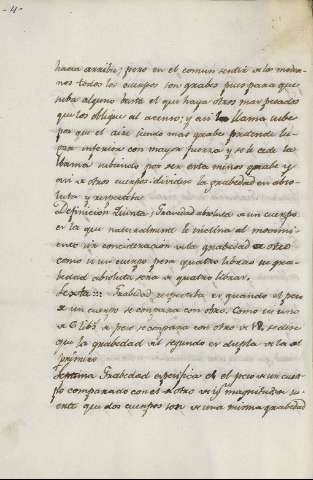 -4-
hacia arriba; pero en el comun sentir de los moder-
nos todos los cuerpos son grabes pues para que
suba alguno basta el que haya otros mas pesados
que los oblige al acenso; y asi la llama sube
por que el aire siendo mas grabe pretende lu-
gar inferior con mayor fuerza y se le cede la
llama subiendo por ser esta menos grabe y
asi de otros cuerpos. dividese la grabedad en abso-
luta y respectiva
Definicion Quinta; Gravidad absoluta de un cuerpo
es la que naturalmente le inclina al movimi-
ento sin consideracion de la grabedad de otro
como si un cuerpo pesa quatro libras su gra-
bedad absoluta sera de quatro libras.
Sexta Grabidad respectiba es quando el peso
de un cuerpo se compara con otro. Como si uno
de 6 libs de peso se compara con otro de 12, se dice
que la grabedad del segundo es dupla de la el
primero
Septima Grabedad especifica es el peso de un cuer-
po comparado con el de otro de igl magnitud de
suerte que dos cuerpos son de una misma grabedad